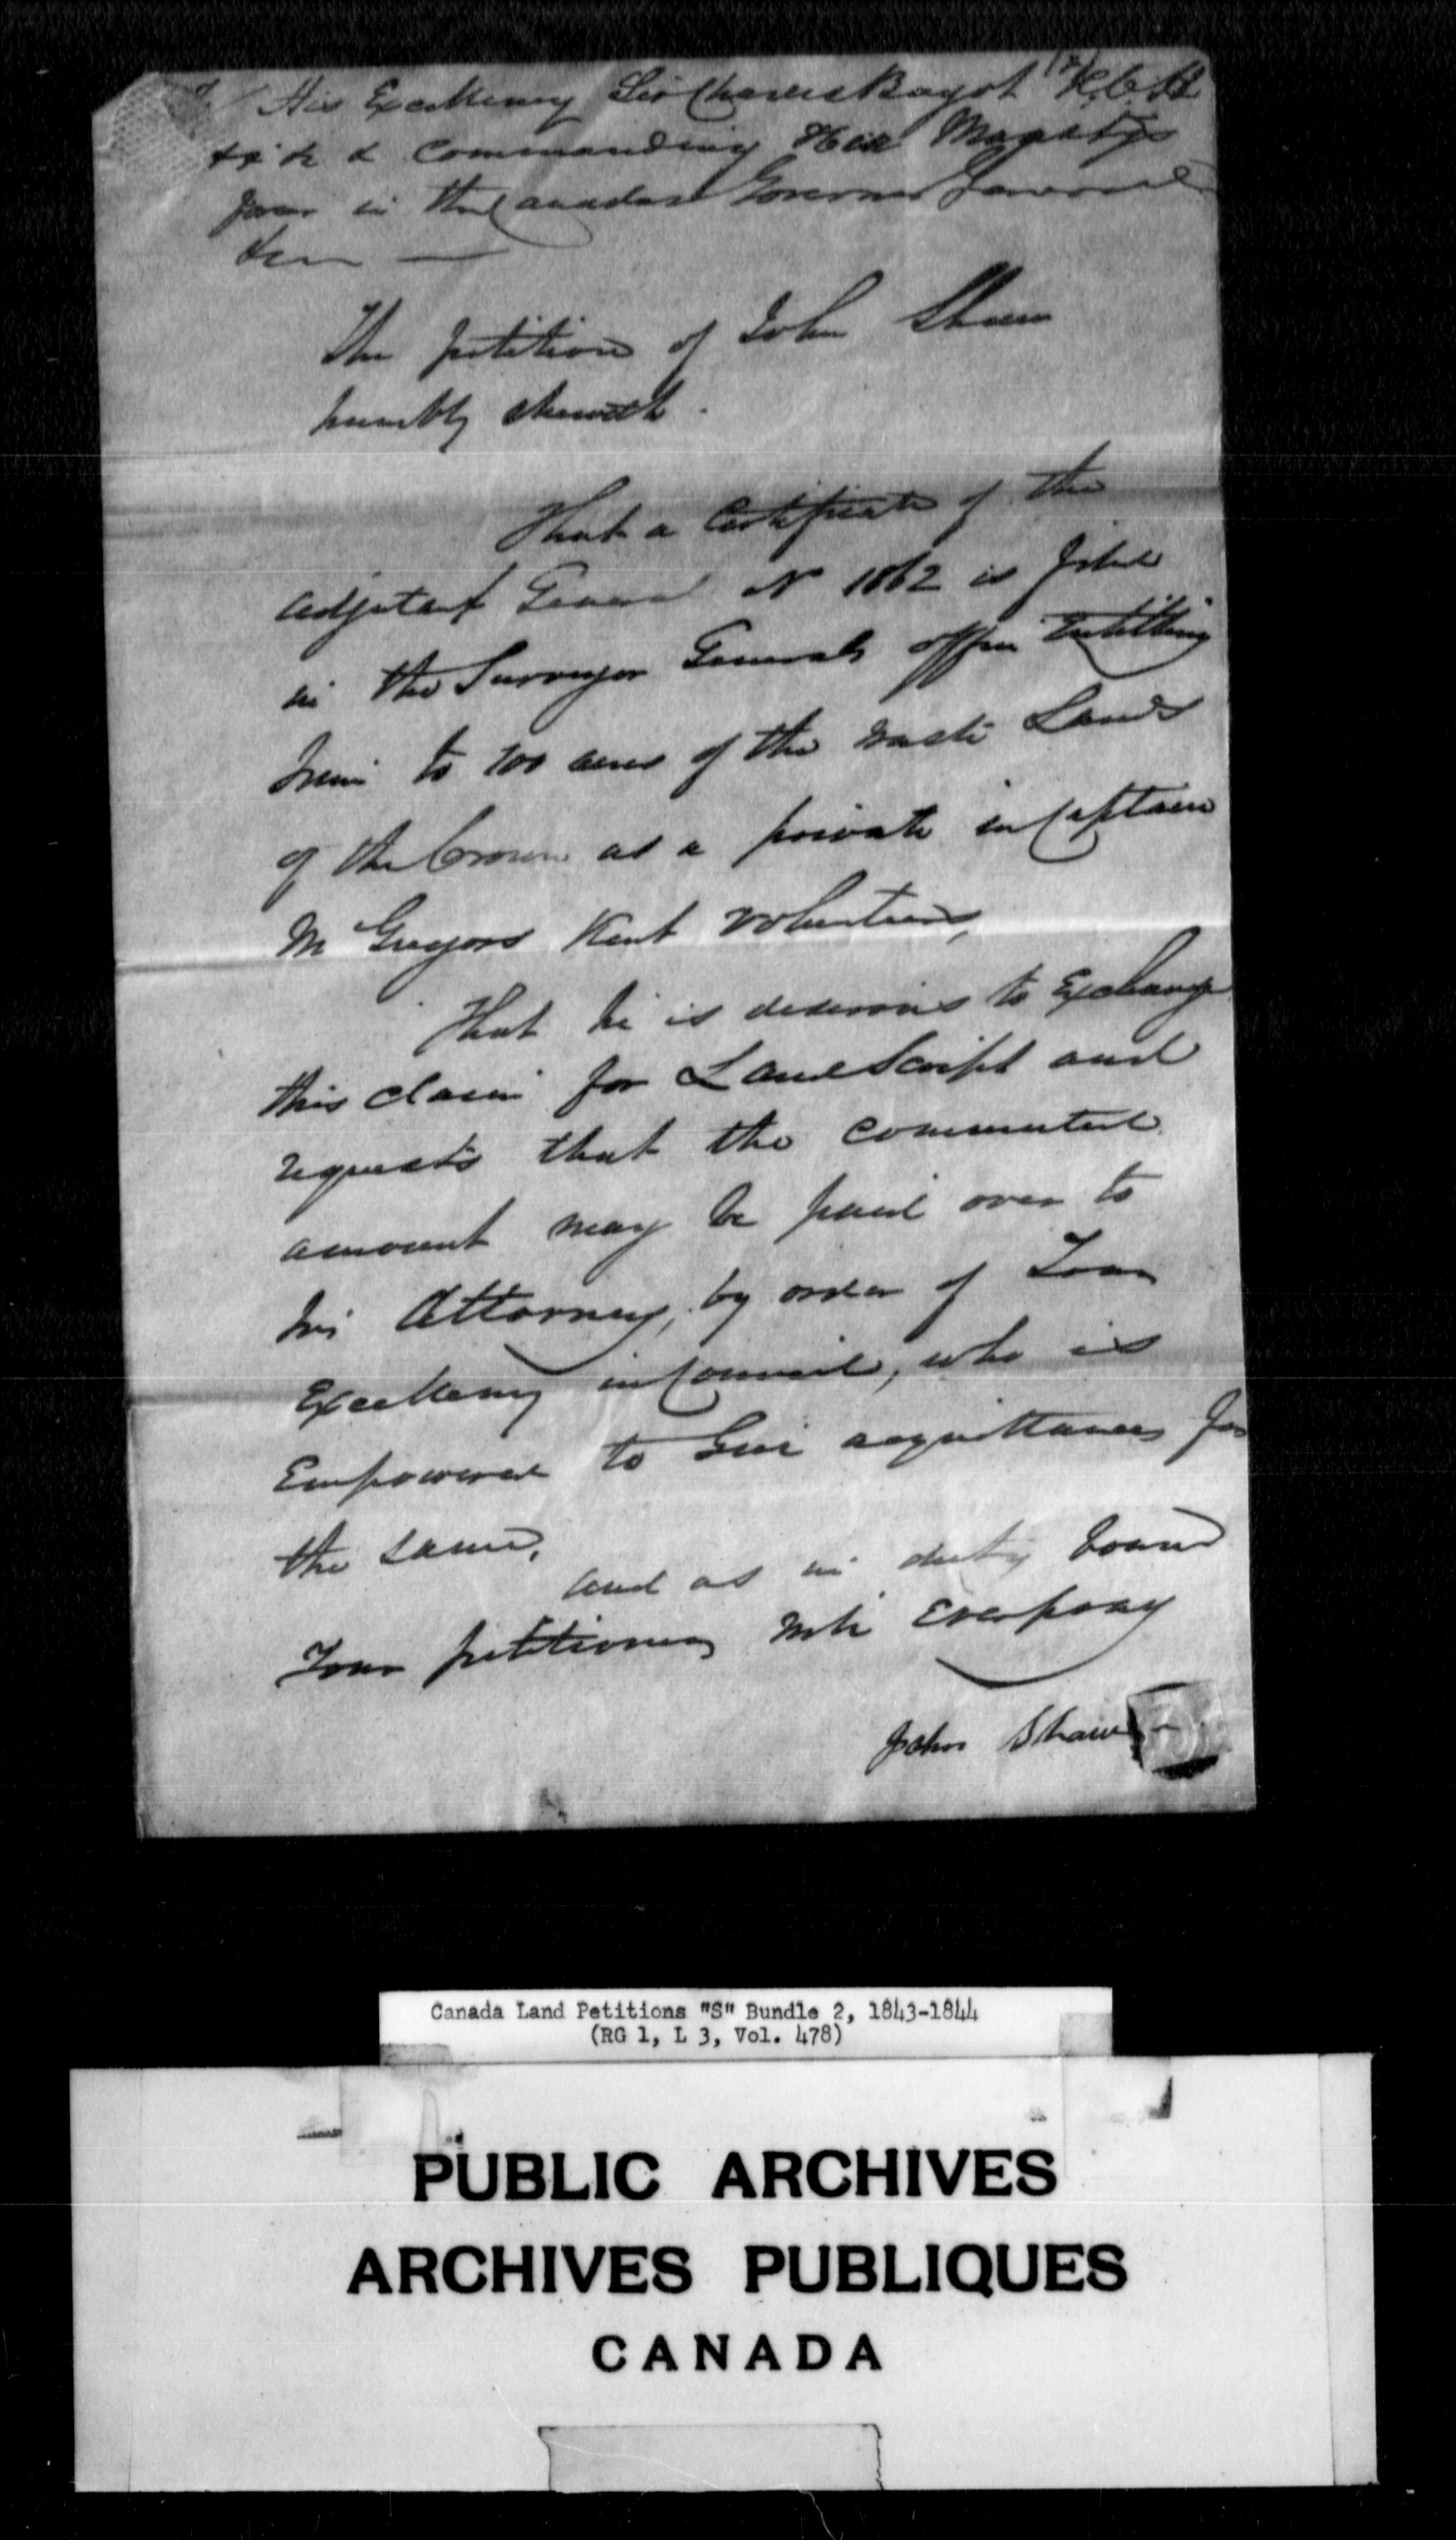 His Excellency Sir Charles Bagot K.C.B
& & & & Commanding Her Majestys
forces in the Canadas Governor General
&c
The petition of John Shaw
humbly sheweth.
That a Certificate of the
Adjutant General No 1862 is filed
in the Surveyor Generals office Entitling
him to 100 acres of the waste Lands
of the Crown as a private in Captain
McGregors Kent Volunteers,
That he is desirous to Exchange
this claim for Land Script and
requests that the commuted
amount may be paid over to
his Attorney, by order of Your
Excellency in Council, who is
Empowered to Give acquittances for
the same,
and as in duty bound
Your petitioner will Ever pray
John Shaw
Canada Land Petitions "S" Bundle 2, 1843-1844
(RG 1, L 3, Vol. 478)
PUBLIC ARCHIVES
ARCHIVES PUBLIQUES
CANADA